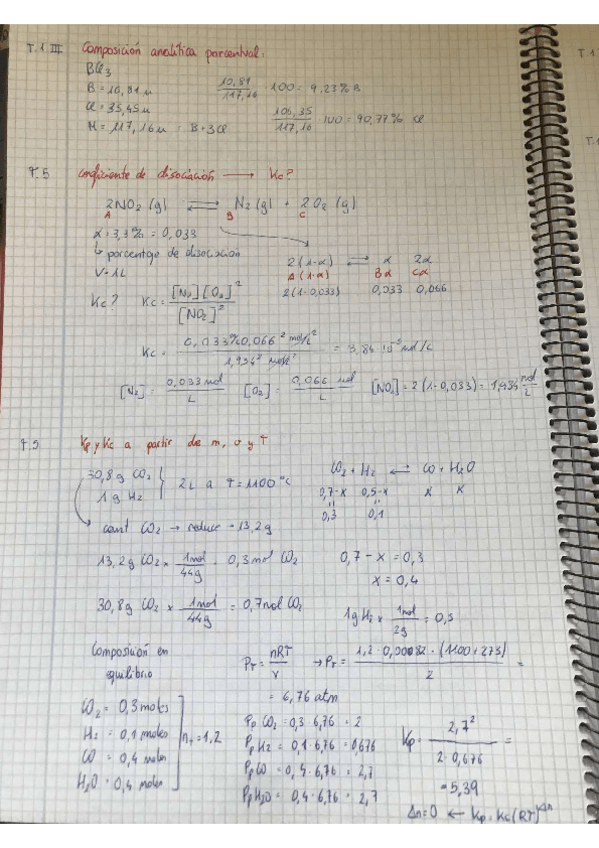 T.1 III Composición analítica porcentual:
BCl3
B = 10,81 u   10,81/117,16 · 100 = 9,23% B
Cl = 35,45 u
M = 117,16 u : B+3Cl   106,35/117,16 · 100 = 90,77% Cl
T.5 coeficiente de disociación → Kc?
2NO2 (g) ⇌ N2 (g) + 2O2 (g)
A B C
α = 3,3% = 0,033
↳ porcentaje de disociación   2(1-α) ⇌ α 2α
V = 1L   A(1-α) Bα Cα
2(1-0,033) 0,033 0,066
Kc? Kc = [N2][O2]^2 / [NO2]^2
Kc = 0,033 0,066^2 mol/L^2 / 1,934^2 = 3,84 10^-5 mol/L
[N2] = 0,033 mol/L   [O2] = 0,066 mol/L   [NO2] = 2(1-0,033) = 1,934 mol/L
T.9 Kp y Kc a partir de m, v y T
30,8g CO2   CO2 + H2 ⇌ CO + H2O
1g H2   2L a T=1100 °C
0,7-x 0,5-x x x
0,3 0,1
cant CO2 → reduce → 13,2g
13,2g CO2 × 1mol/44g = 0,3mol CO2   0,7 - x = 0,3
x = 0,4
30,8g CO2 × 1mol/44g = 0,7mol CO2   1g H2 × 1mol/2g = 0,5
Composición en equilibrio   PT = nRT/v → PT = 1,2 · 0,00082 · (1100+273) / 2 =
= 6,76 atm
CO2 = 0,3 moles   Pp CO2 = 0,3 · 6,76 = 2
H2 = 0,1 moles   nT = 1,2   Pp H2 = 0,1 · 6,76 = 0,676   Kp = 2,7^2 / 2 · 0,676 =
CO = 0,4 moles   Pp CO = 0,4 · 6,76 = 2,7
H2O = 0,4 moles   Pp H2O = 0,4 · 6,76 = 2,7   = 5,39
Δn=0 ← Kp = Kc(RT)^Δn